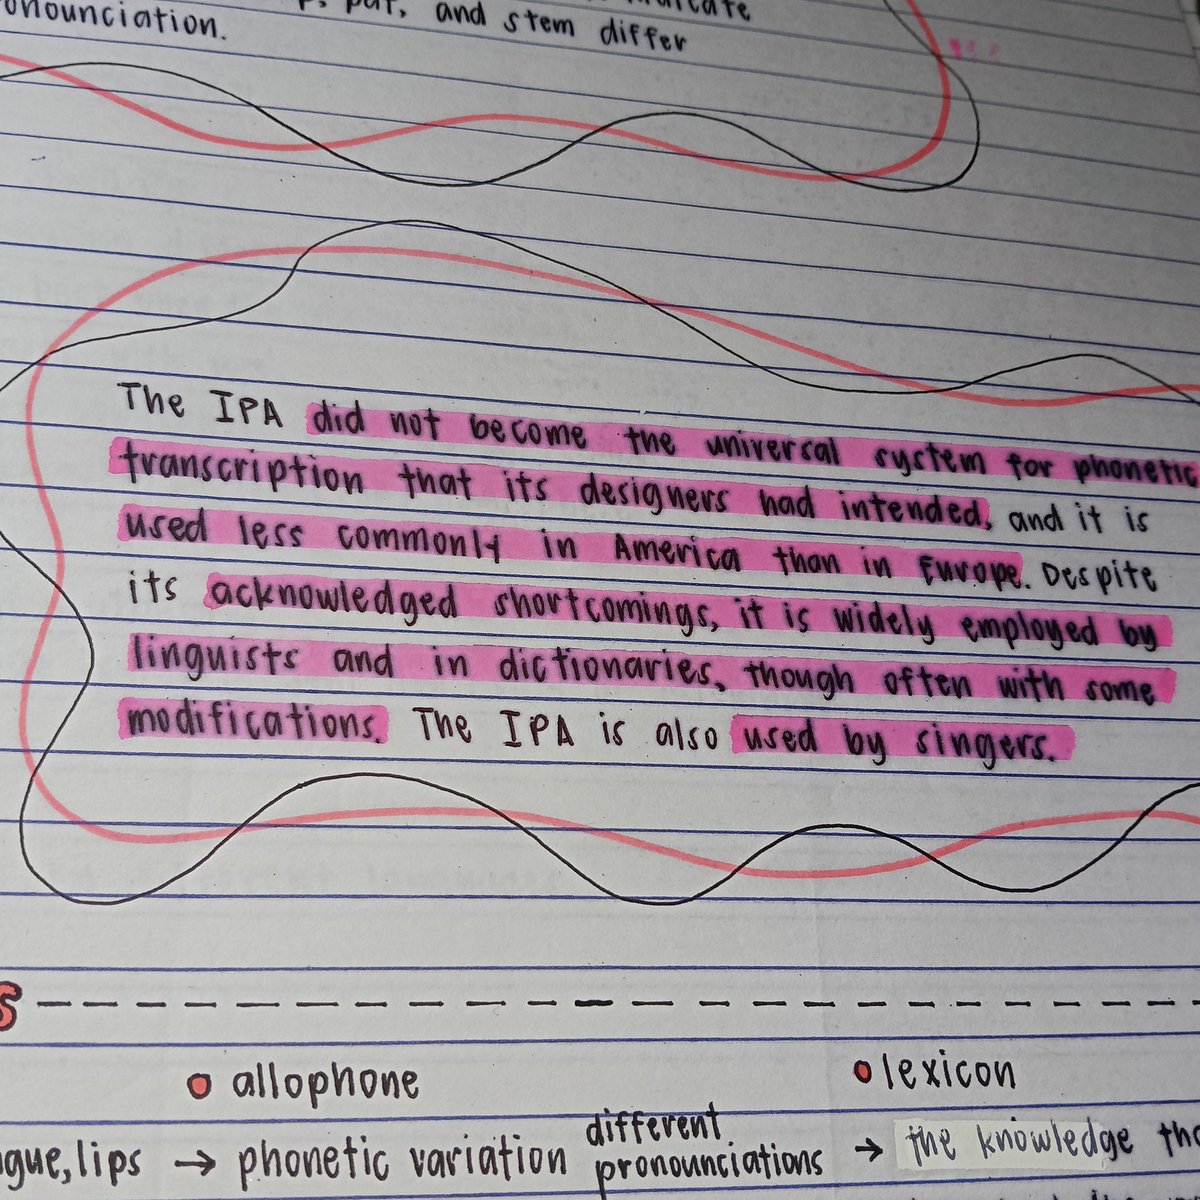 and stem differ
The IPA did not become the universal system for phonetic
transcription that its designers had intended, and it is
used less commonly in America than in Europe. Despite
its acknowledged shortcomings, it is widely employed by
linguists and in dictionaries, though often with some
modifications. The IPA is also used by singers.
allophone
lexicon
lips → phonetic variation
different
pronounciations
→ the knowledge